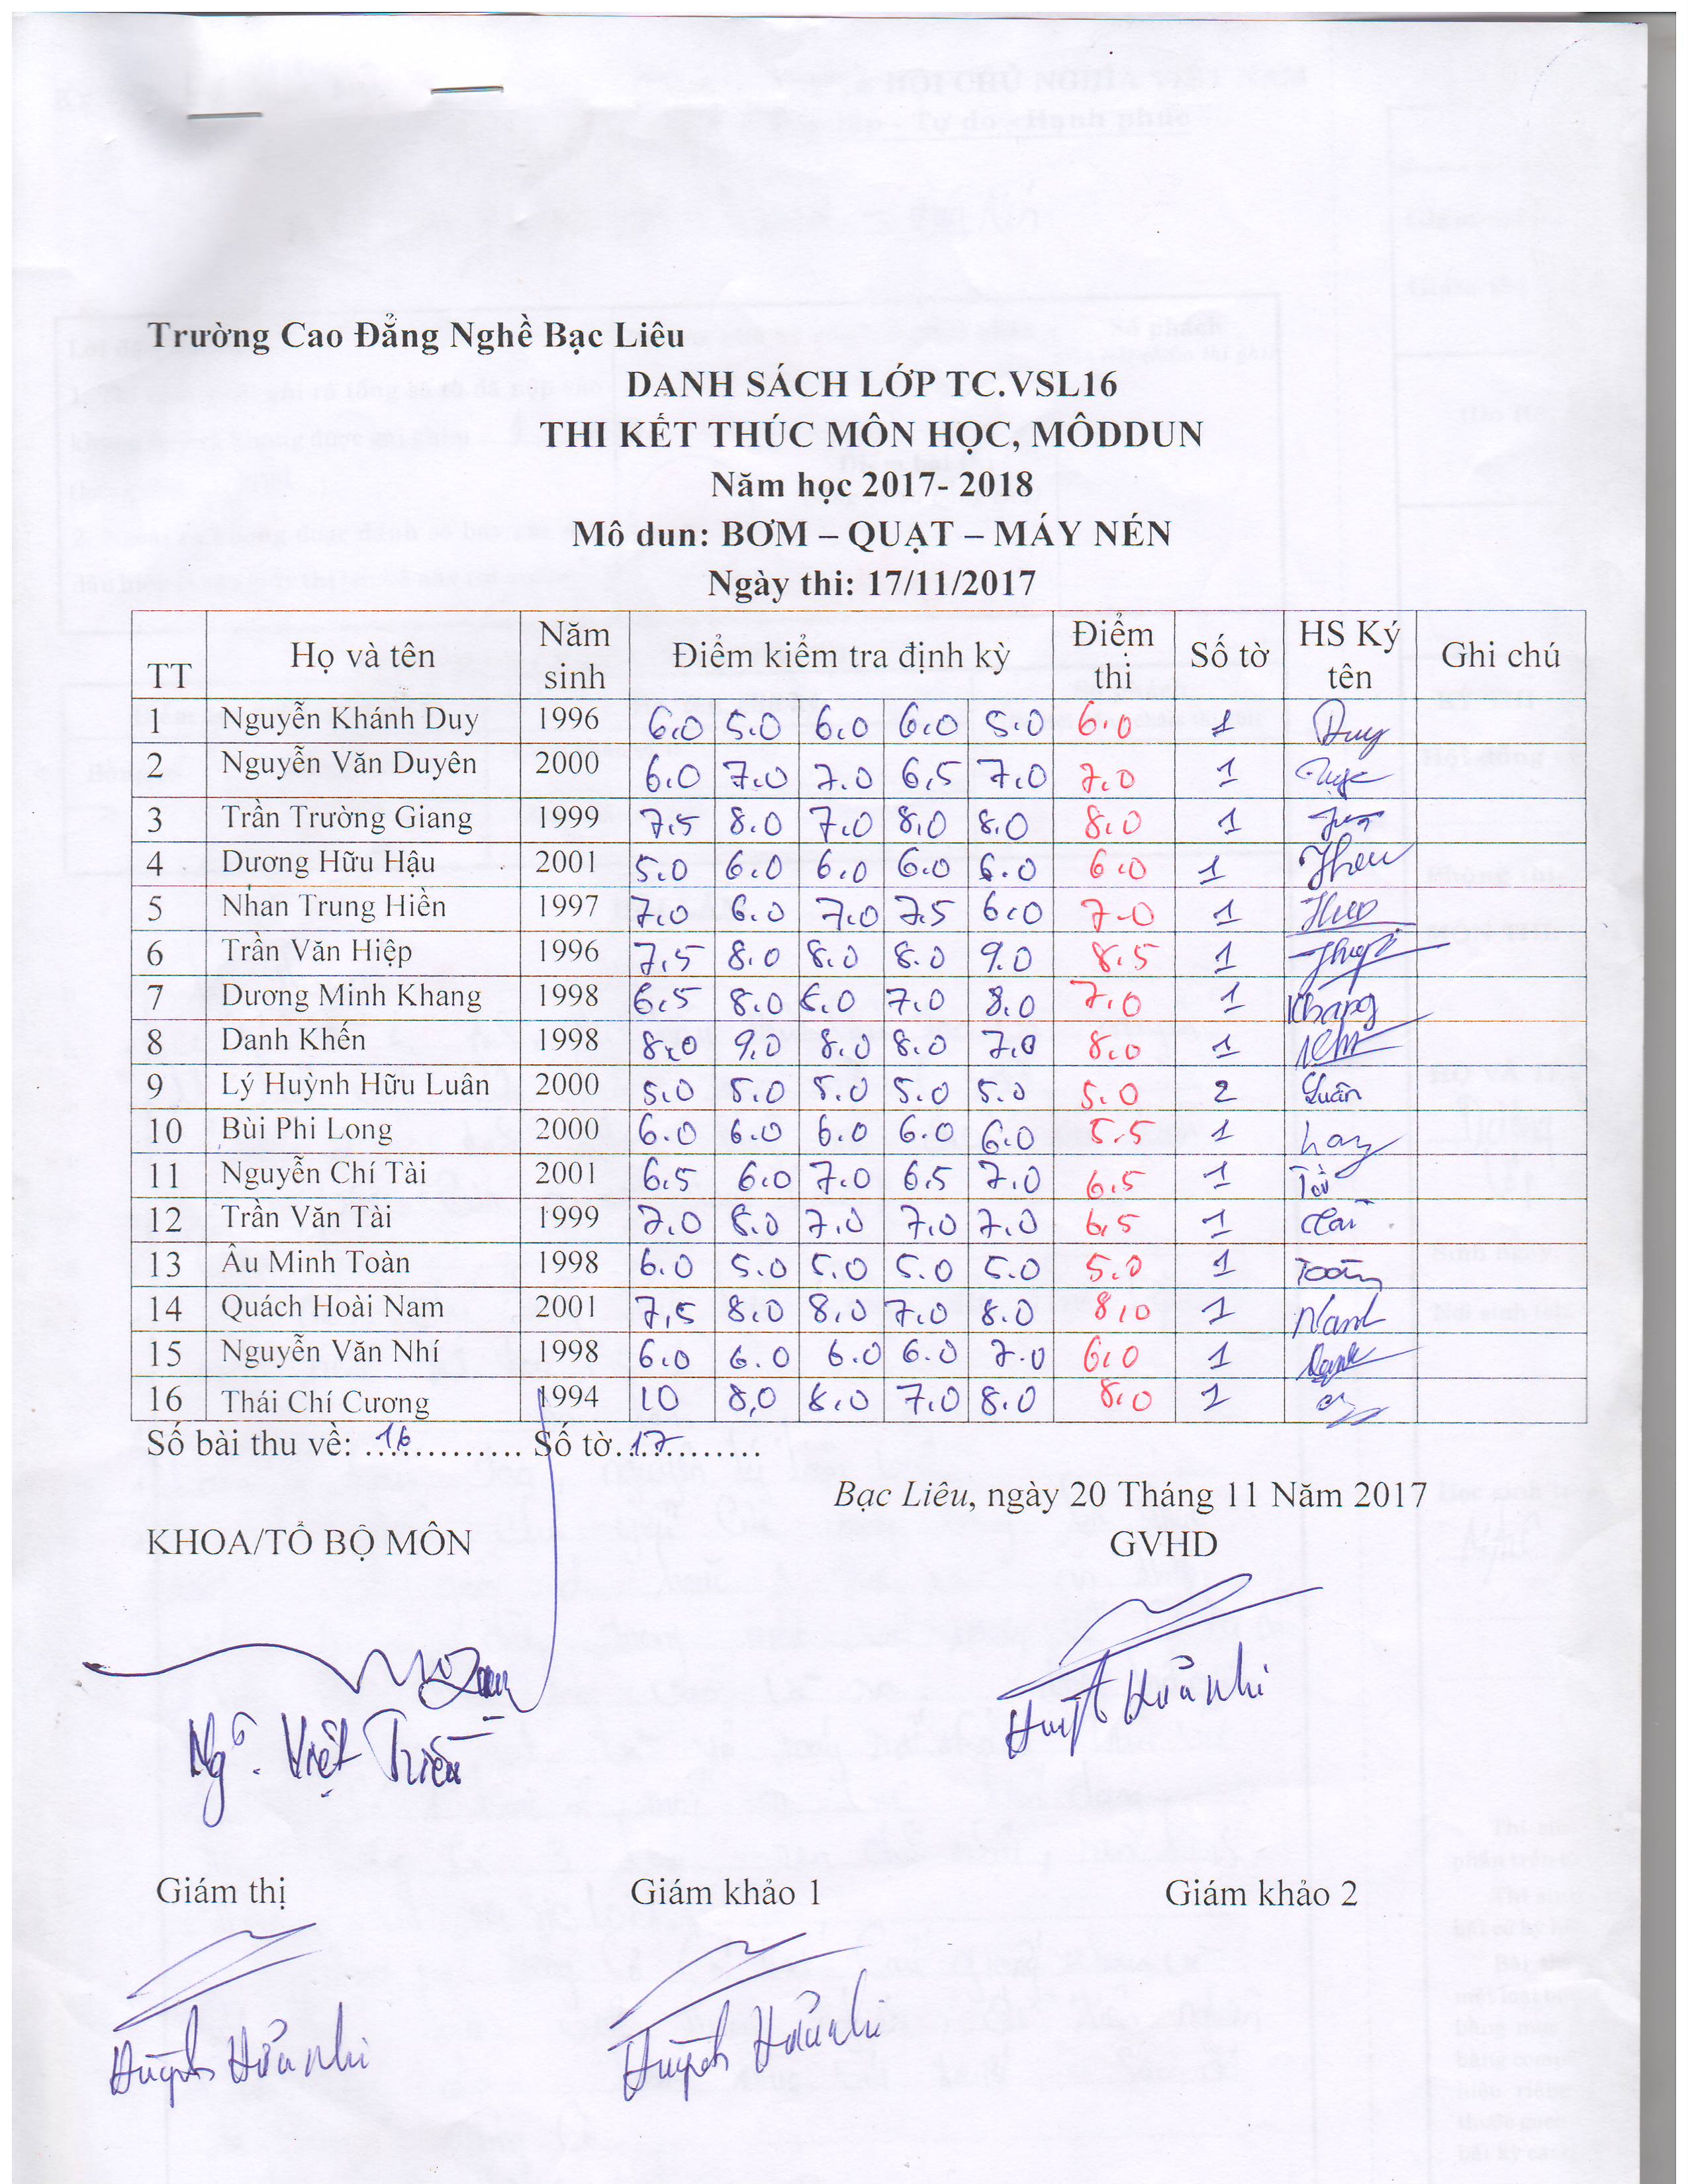 Trường Cao Đẳng Nghề Bạc Liêu
DANH SÁCH LỚP TC.VSL16
THI KẾT THÚC MÔN HỌC, MÔDDUN
Năm học 2017- 2018
Mô dun: BƠM – QUẠT – MÁY NÉN
Ngày thi: 17/11/2017
TT Họ và tên Năm sinh Điểm kiểm tra định kỳ Điểm thi Số tờ HS Ký tên Ghi chú
1 Nguyễn Khánh Duy 1996 6.0 5.0 6.0 6.0 5.0 6.0 1 Duy
2 Nguyễn Văn Duyên 2000 6.0 7.0 7.0 6,5 7,0 7.0 1
3 Trần Trường Giang 1999 7,5 8.0 7.0 8,0 8.0 8.0 1
4 Dương Hữu Hậu 2001 5.0 6.0 6.0 6.0 6.0 6.0 1
5 Nhan Trung Hiền 1997 7.0 6.0 7.0 7.5 6.0 7.0 1
6 Trần Văn Hiệp 1996 7,5 8.0 8.0 8.0 9.0 8.5 1
7 Dương Minh Khang 1998 6.5 8.0 7.0 8.0 7.0 1 Khang
8 Danh Khến 1998 8.0 9.0 8.0 8.0 7.0 8.0 1
9 Lý Huỳnh Hữu Luân 2000 5.0 5.0 5.0 5.0 5.0 5.0 2 Luân
10 Bùi Phi Long 2000 6.0 6.0 6.0 6.0 6.0 5.5 1 Long
11 Nguyễn Chí Tài 2001 6.5 6.0 7.0 6,5 7.0 6.5 1 Tài
12 Trần Văn Tài 1999 7.0 8.0 7.0 7.0 7.0 6,5 1 Tài
13 Âu Minh Toàn 1998 6.0 5.0 5.0 5.0 5.0 5.0 1 Toàn
14 Quách Hoài Nam 2001 7,5 8.0 8.0 7.0 8.0 8,0 1 Nam
15 Nguyễn Văn Nhí 1998 6.0 6.0 6.0 6.0 7.0 6.0 1
16 Thái Chí Cương 1994 10 8,0 8.0 7.0 8.0 8.0 1
Số bài thu về: ....16.... Số tờ..17....
Bạc Liêu, ngày 20 Tháng 11 Năm 2017
KHOA/TỔ BỘ MÔN GVHD
Ngô Việt Triều Huỳnh Hữu Nhi
Giám thị Giám khảo 1 Giám khảo 2
Huỳnh Hữu Nhi Huỳnh Hữu Nhi